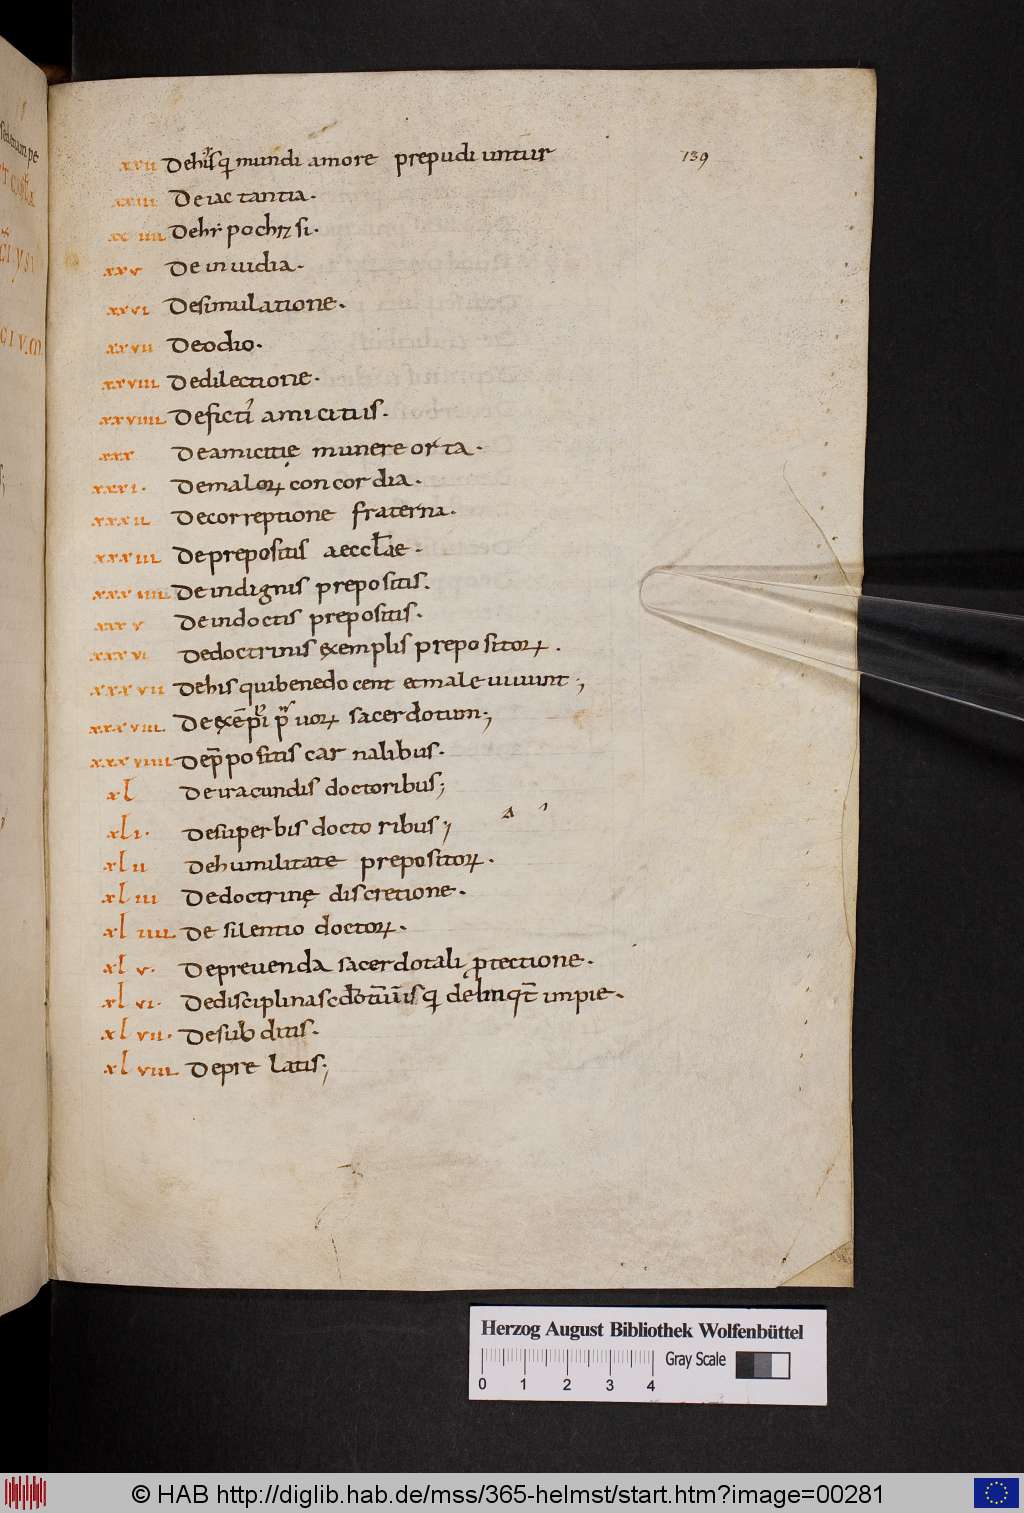 xxii Dehis qui mundi amore prepudi untur 139
xxiii De iac tantia.
xx iiii Dehr pochrisi.
xxv De inuidia.
xxvi Desimulatione.
xxvii Deodio.
xxviii Dedilectione.
xxviiii Deficti amicitiis.
xxx Deamicitie munere orta.
xxxi. Demaloꝝ concordia.
xxxii Decorreptione fraterna.
xxxiii Deprepositis aecclae.
xxxiiii De indignis prepositis.
xxxv De indoctis prepositis.
xxxvi Dedoctrinis exemplis prepositoꝝ.
xxxvii Dehis quibenedocent etmale uiuunt;
xxxviii. De sacerdotum;
xxxviiii Dep̄positis carnalibus.
xl De iracundis doctoribus;
xli. Desuperbis doctoribus;
xlii Dehumilitate prepositoꝝ.
xliii Dedoctrinę discretione.
xliiii De silentio doctoꝝ.
xlv. Depreuenda sacerdotali ꝓtectione.
xlvi. Dedisciplina impie.
xlvii. Desubditis.
xlviii Deprelatis;
Herzog August Bibliothek Wolfenbüttel
0 1 2 3 4 Gray Scale
© HAB http://diglib.hab.de/mss/365-helmst/start.htm?image=00281